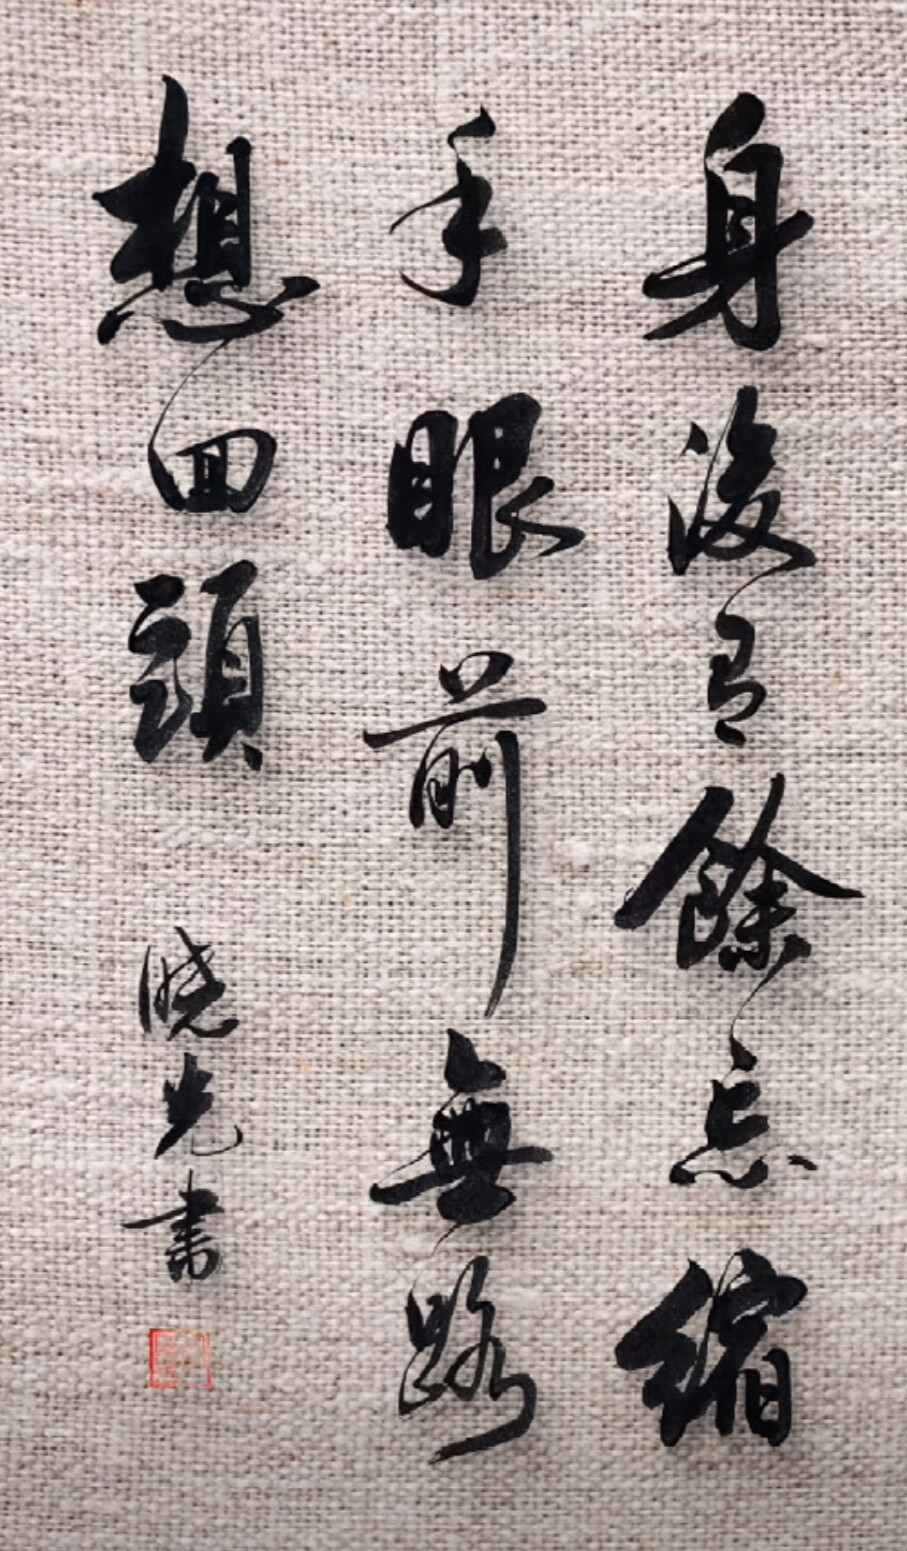 身後有餘忘縮
手眼前無路
想回頭
曉光書